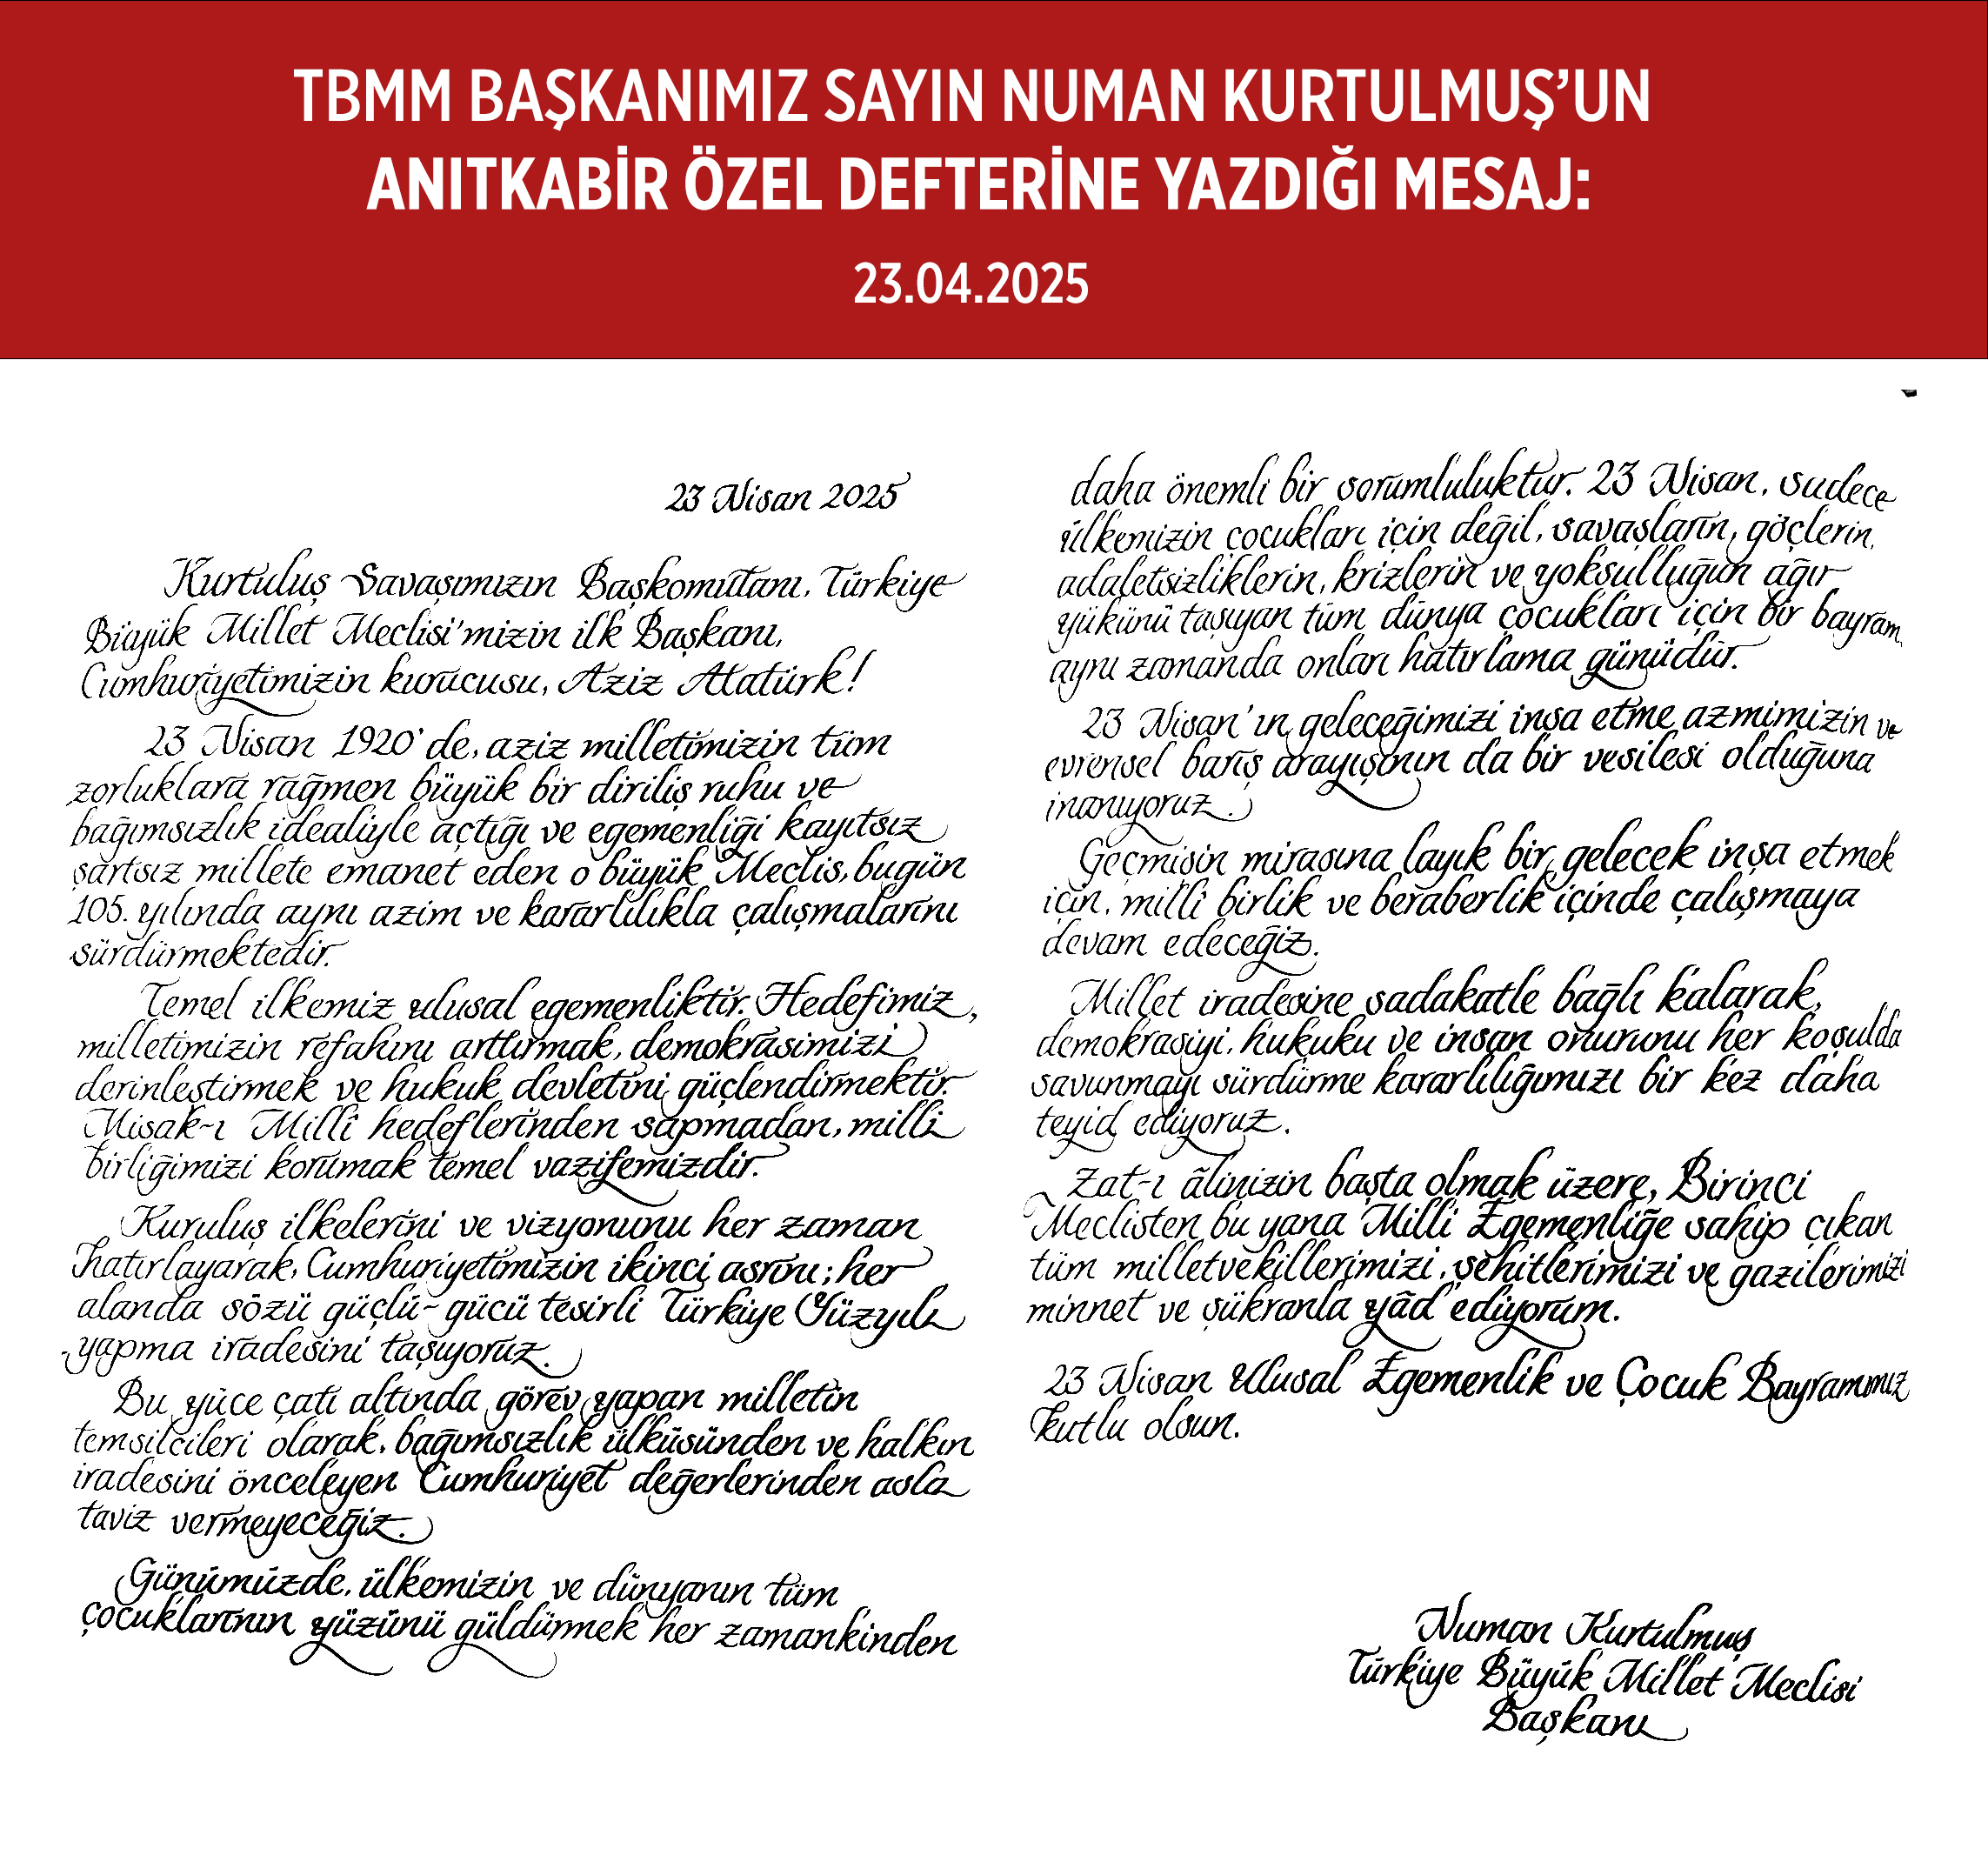 TBMM BAŞKANIMIZ SAYIN NUMAN KURTULMUŞ’UN
ANITKABİR ÖZEL DEFTERİNE YAZDIĞI MESAJ:
23.04.2025
23 Nisan 2025
Kurtuluş Savaşımızın Başkomutanı, Türkiye
Büyük Millet Meclisi'mizin ilk Başkanı,
Cumhuriyetimizin kurucusu, Aziz Atatürk!
23 Nisan 1920'de, aziz milletimizin tüm
zorluklara rağmen büyük bir diriliş ruhu ve
bağımsızlık idealiyle açtığı ve egemenliği kayıtsız
şartsız millete emanet eden o büyük Meclis, bugün
105. yılında aynı azim ve kararlılıkla çalışmalarını
sürdürmektedir.
Temel ilkemiz ulusal egemenliktir. Hedefimiz,
milletimizin refahını arttırmak, demokrasimizi
derinleştirmek ve hukuk devletini güçlendirmektir.
Misak-ı Milli hedeflerinden sapmadan, milli
birliğimizi korumak temel vazifemizdir.
Kuruluş ilkelerini ve vizyonunu her zaman
hatırlayarak, Cumhuriyetimizin ikinci asrını; her
alanda sözü güçlü-gücü tesirli Türkiye Yüzyılı
yapma iradesini taşıyoruz.
Bu yüce çatı altında görev yapan milletin
temsilcileri olarak, bağımsızlık ülküsünden ve halkın
iradesini önceleyen Cumhuriyet değerlerinden asla
taviz vermeyeceğiz.
Günümüzde, ülkemizin ve dünyanın tüm
çocuklarının yüzünü güldürmek her zamankinden
daha önemli bir sorumluluktur. 23 Nisan, sadece
ülkemizin çocukları için değil, savaşların, göçlerin,
adaletsizliklerin, krizlerin ve yoksulluğun ağır
yükünü taşıyan tüm dünya çocukları için bir bayram,
aynı zamanda onları hatırlama günüdür.
23 Nisan'ın geleceğimizi inşa etme azmimizin ve
evrensel barış arayışının da bir vesilesi olduğuna
inanıyoruz.
Geçmişin mirasına layık bir gelecek inşa etmek
için, milli birlik ve beraberlik içinde çalışmaya
devam edeceğiz.
Millet iradesine sadakatle bağlı kalarak,
demokrasiyi, hukuku ve insan onurunu her koşulda
savunmayı sürdürme kararlılığımızı bir kez daha
teyid ediyoruz.
Zat-ı âlinizin başta olmak üzere, Birinci
Meclisten bu yana Milli Egemenliğe sahip çıkan
tüm milletvekillerimizi, şehitlerimizi ve gazilerimizi
minnet ve şükranla yâd ediyorum.
23 Nisan Ulusal Egemenlik ve Çocuk Bayramımız
kutlu olsun.
Numan Kurtulmuş
Türkiye Büyük Millet Meclisi
Başkanı